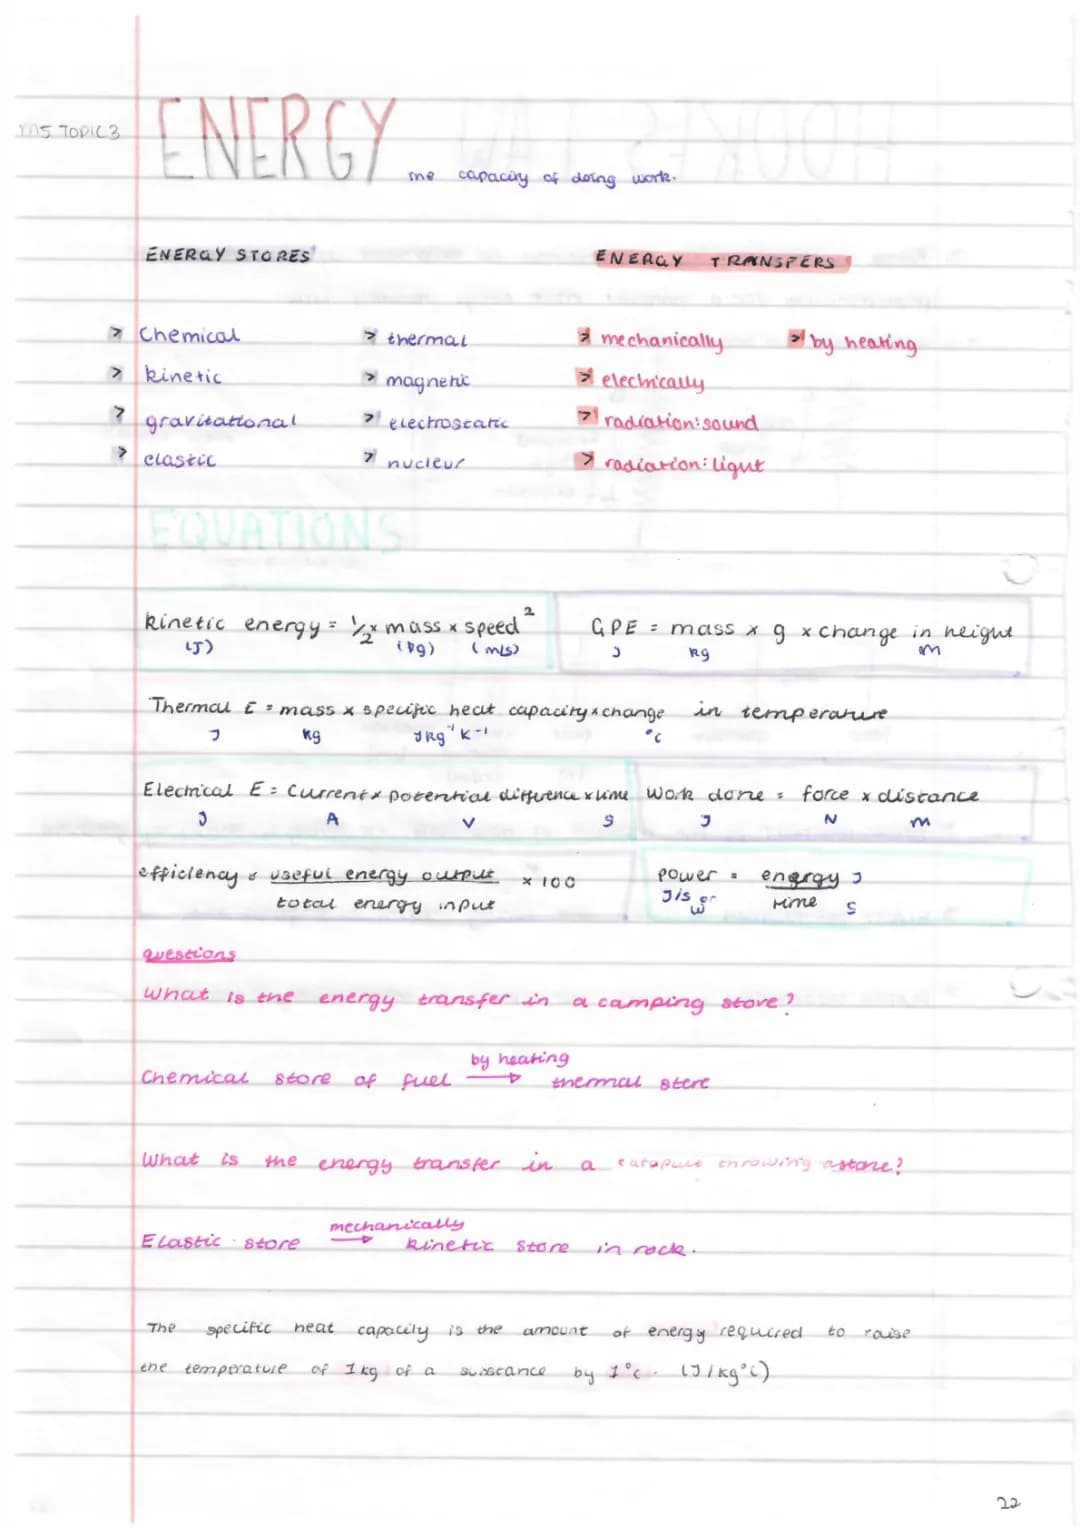 TOPIC 3
ENERGY
the capacity of doing work.
ENERGY STORES
ENERGY TRANSFERS
> Chemical > thermal > mechanically > by heating
> kinetic > magnetic > electrically
> gravitational > electrostatic > radiation: sound
> elastic > nuclear > radiation: light
EQUATIONS
kinetic energy = 1/2 x mass x speed²
(J) (kg) (m/s)
GPE = mass x g x change in height
J kg m
Thermal E = mass x specific heat capacity x change in temperature
J kg Jkg⁻¹K⁻¹ °C
Electrical E = Current x potential difference x time
J A V S
Work done = force x distance
J N m
efficiency = useful energy output x 100
total energy input
power = energy J
J/s or W time S
questions
What is the energy transfer in a camping stove?
by heating
Chemical store of fuel → thermal store
What is the energy transfer in a catapult throwing a stone?
mechanically
Elastic store → kinetic store in rock.
The specific heat capacity is the amount of energy required to raise
the temperature of 1kg of a substance by 1°C. (J/kg°C)
22